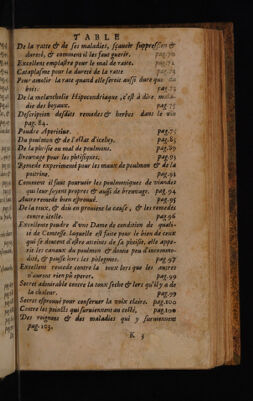 TABLE
De la ratte & de ses maladies, sçavoir suppression &
dureté, & comment il les faut guerir. pag.70
Excellent emplastre pour le mal de ratte. pag.71
Cataplasme pour la dureté de la ratte
Pour amolir la rate quand elle seroit aussi dure que du
bois. pag.75
De la melancholie Hipocondriaque, c'est à dire mala-
die des boyaux. pag.75
Description desdits remedes & herbes dans le vin
pag. 84.
Poudre Aperitiue. pag.75
Du poulmon & de l'estat d'iceluy. pag.85
De la phtisie ou mal de poulmons. pag.89
Breuuage pour les phtisiques. pag.91
Remede experiment pour les maux de poulmon & de la
poitrine. pag.91
Comment il faut pouruoir les poulmoniques de viandes
qui leur soyent propres & aussi de breuuage. pag.94
Autre remede bien esprouué. pag.95
De la toux, & d'où en prouient la cause, & les remedes
contre icelle. pag.96
Excellente poudre d'vne Dame de condition de quali-
té de Comtesse. laquelle est faite pour le bien de ceux
qui se doutent d'estre atteins de sa phtisie, elle appe-
tit les canaux du poulmon & donne peu d'incommo-
dité, & pousse hors les phlegmes. pag.97
Excellent remede contre la toux lors que les autres
n'auront rien pû operer. pag.99
Secret admirable contre la toux seche & lors qu'il y a de
la chaleur. pag.99
Secret esprouué pour conseruer la voix claire. pag.100
Contre les points qui suruiennent au costé, pag.100
Des roignons & des maladies qui y suruiennent
pag.103.
K 3